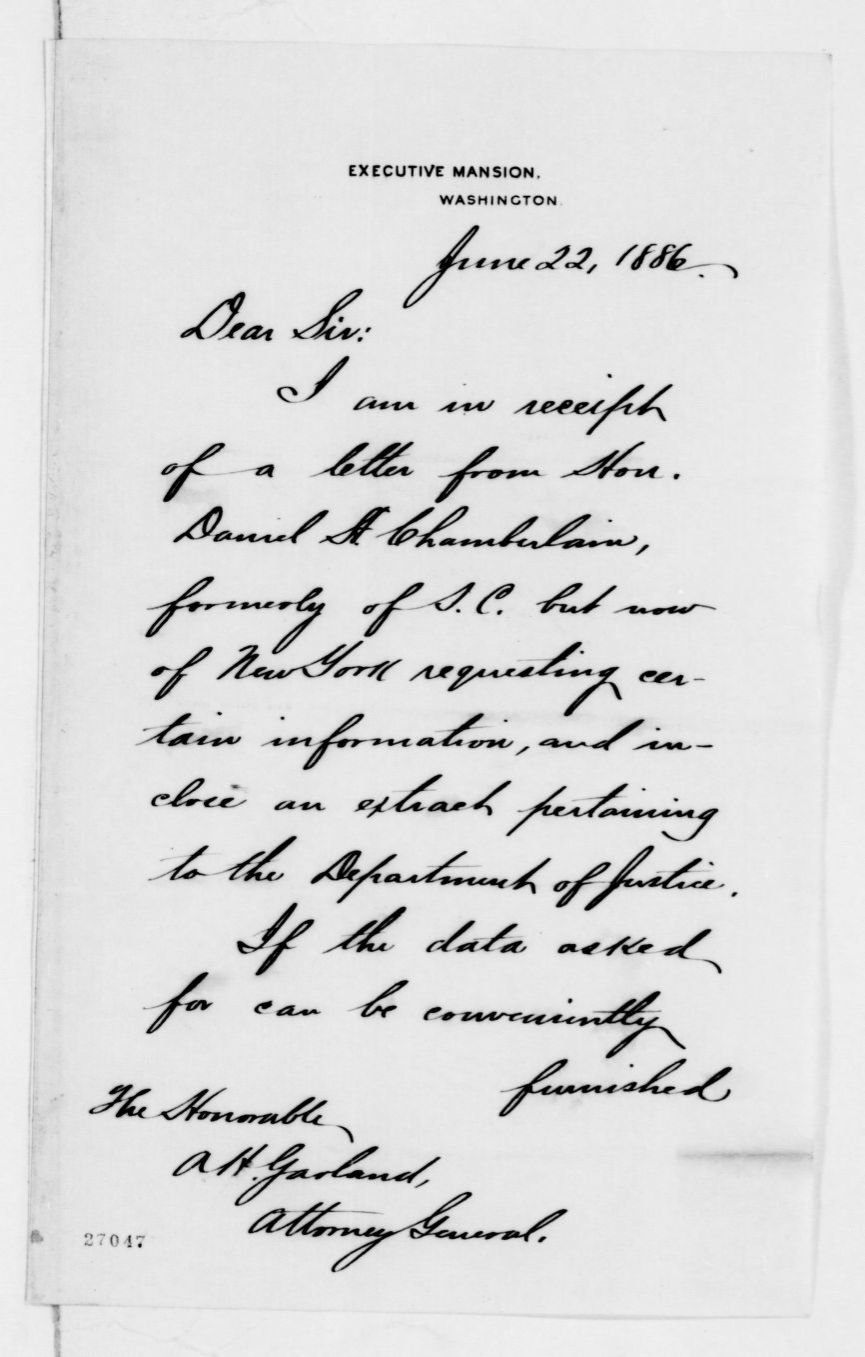 EXECUTIVE MANSION,
WASHINGTON.
June 22, 1886.
Dear Sir:
I am in receipt
of a letter from Hon.
Daniel H. Chamberlain,
formerly of S.C. but now
of New York requesting cer-
tain information, and in-
close an extract pertaining
to the Department of Justice.
If the data asked
for can be conveniently
furnished
The Honorable
A. H. Garland,
Attorney General.
27047